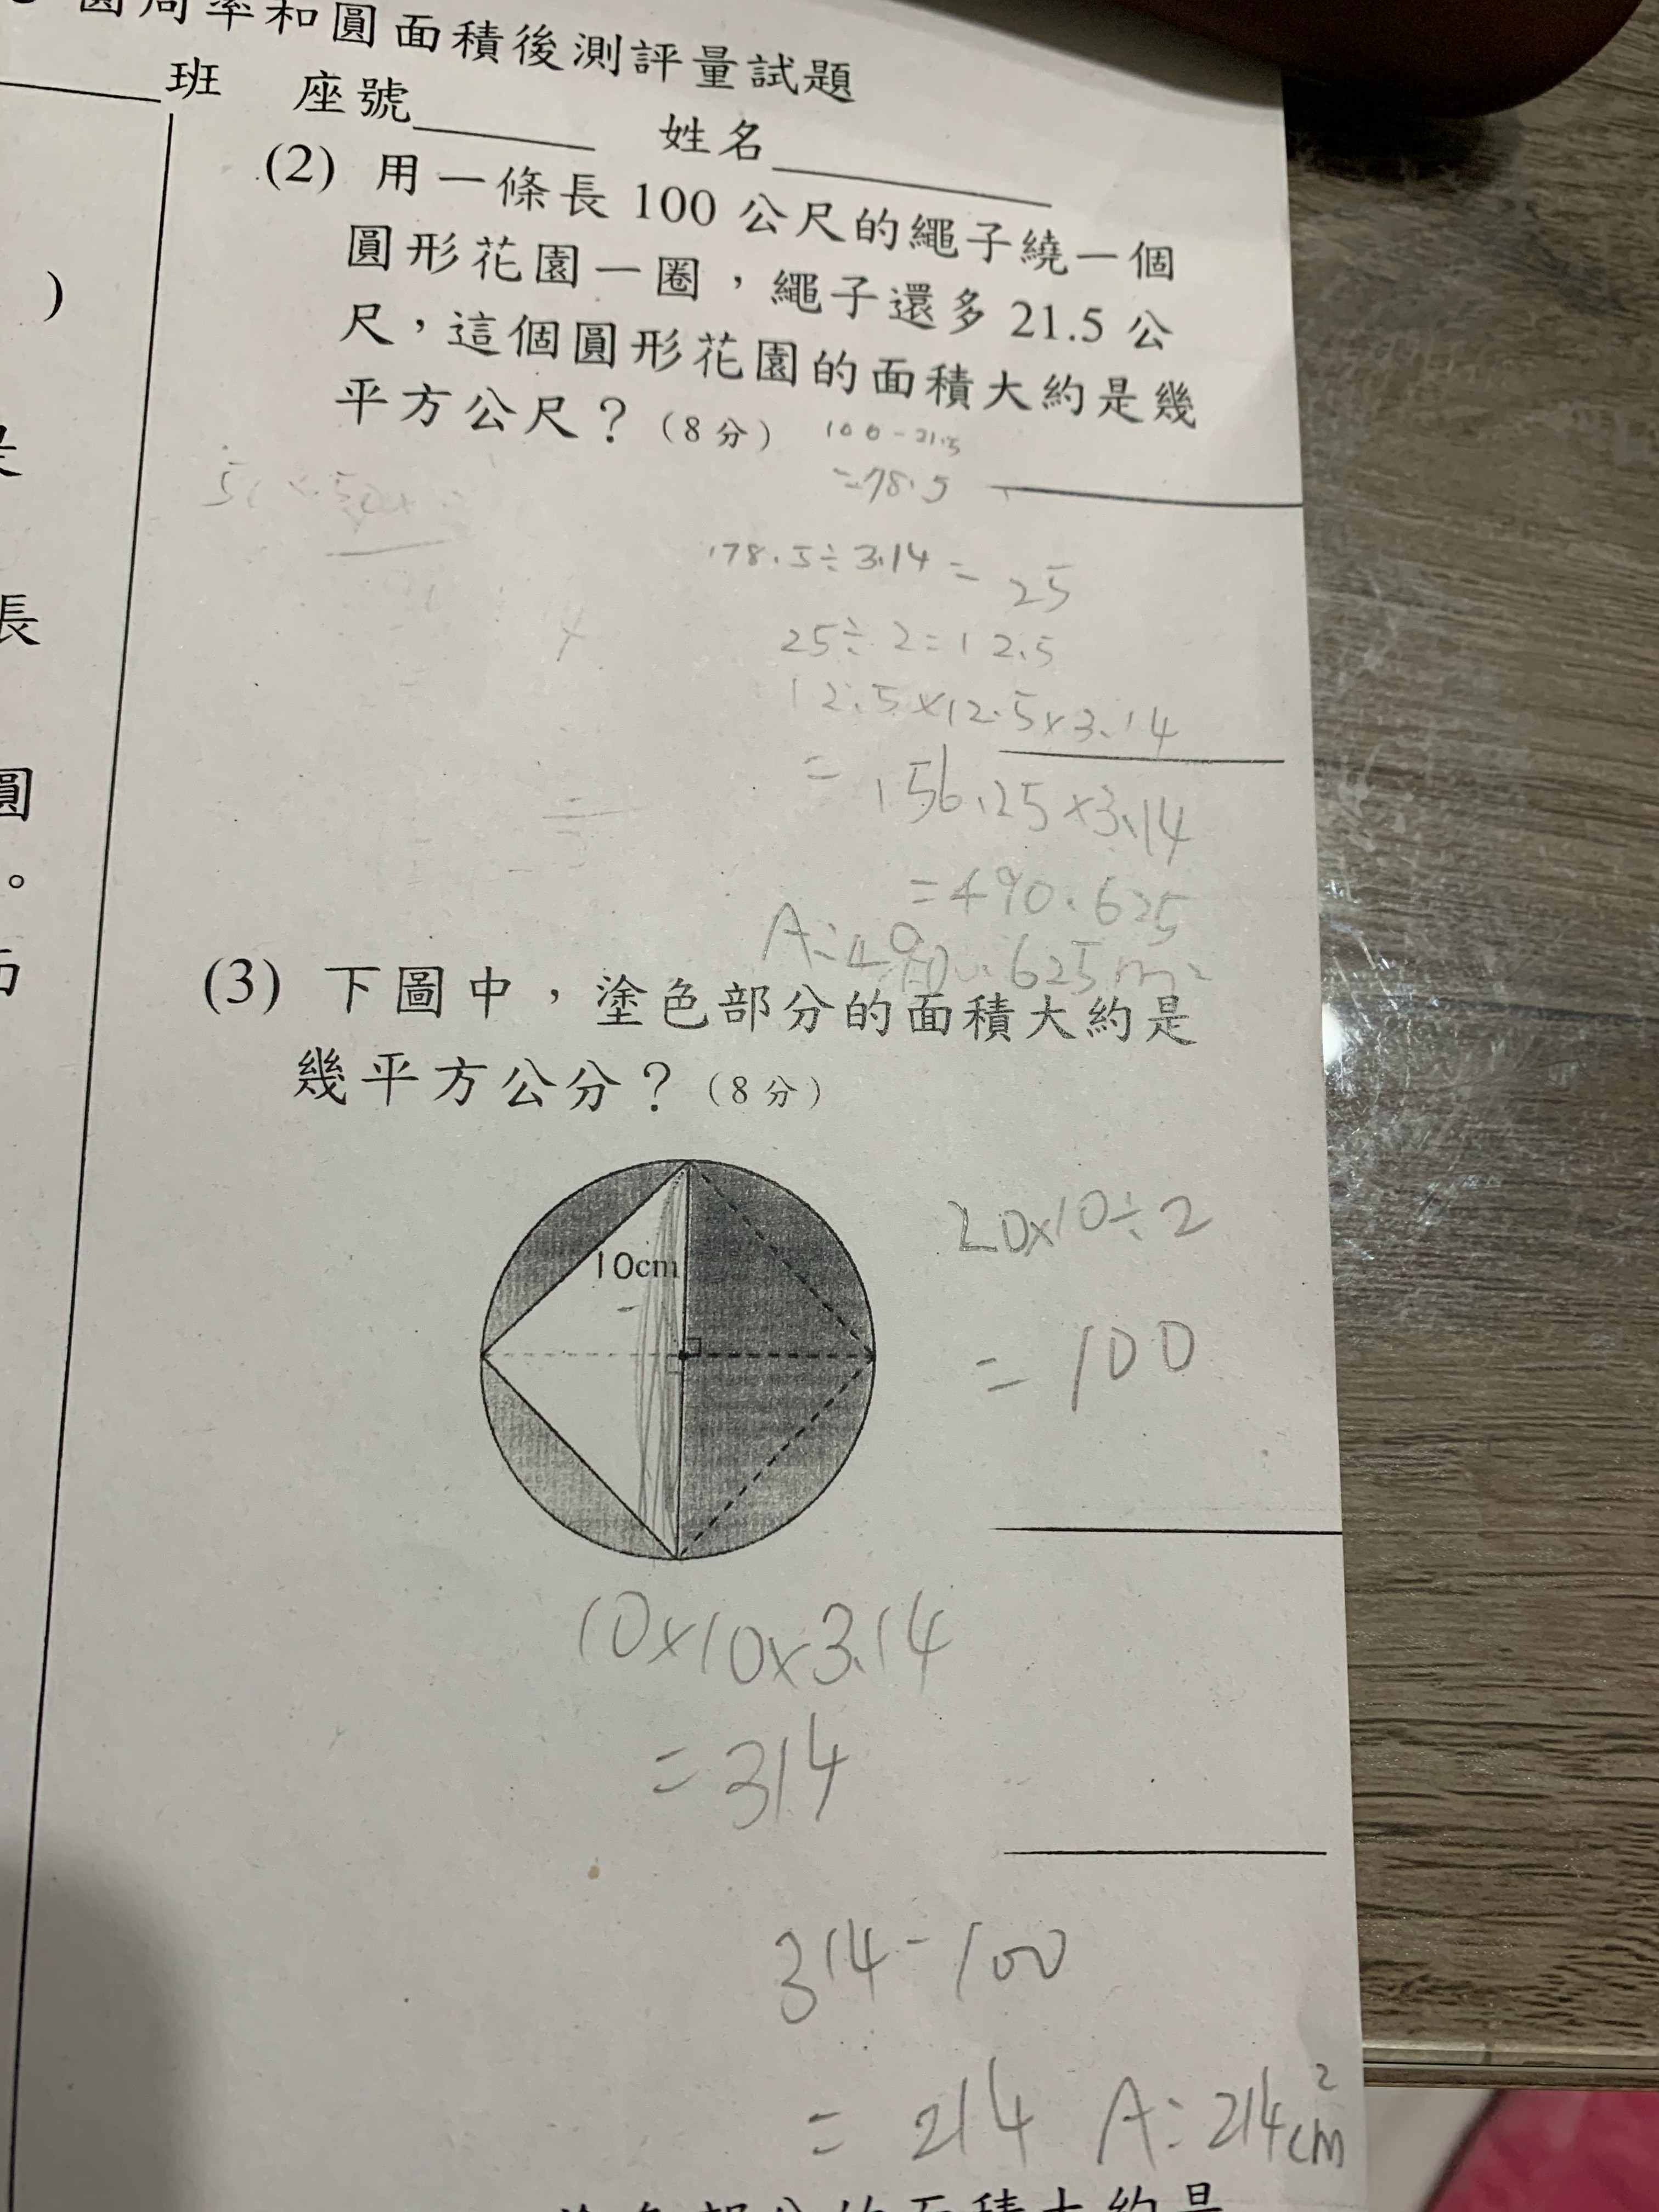 圓周率和圓面積後測評量試題
班 座號 姓名
(2) 用一條長 100 公尺的繩子繞一個
圓形花園一圈，繩子還多 21.5 公
尺，這個圓形花園的面積大約是幾
平方公尺？（8 分）
100-21.5
=78.5
78.5÷3.14=25
25÷2=12.5
12.5×12.5×3.14
=156.25×3.14
=490.625
A:490.625m²
(3) 下圖中，塗色部分的面積大約是
幾平方公分？（8 分）
10cm
20×10÷2
=100
10×10×3.14
=314
314-100
=214 A:214cm²
)
長
圓
。
塗色部分的面積大約是